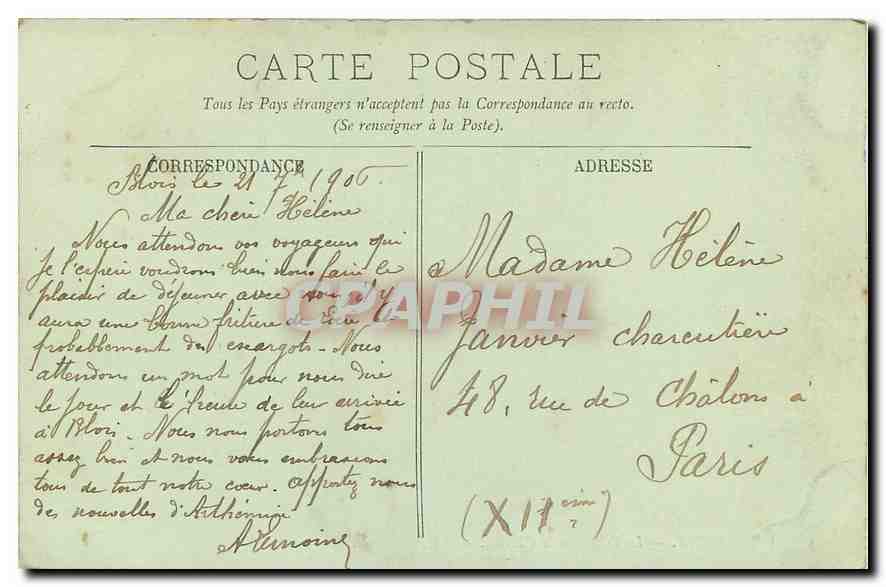 CARTE POSTALE
Tous les Pays étrangers n'acceptent pas la Correspondance au recto.
(Se renseigner à la Poste).
CORRESPONDANCE
ADRESSE
Blois le 21 7bre 1906.
Ma cheré Hélène
Nous attendons vos voyageurs qui
je l'esperé voudrons bien nous faire le
plaisir de déjeuner avec nous il y
aura une bonne friture de
probablement des escargots - Nous
attendons un mot pour nous dire
le jour et l'heure de leur arrivée
à Blois. Nous nous portons tous
assez bien et nous vous embrassons
tous de tout notre coeur. Apportez nous
des nouvelles d'Arthémise
A Lemoine
Madame Hélène
Janvier charcutière
48, rue de Châlons à
Paris
(XII eime)
CPAPHIL